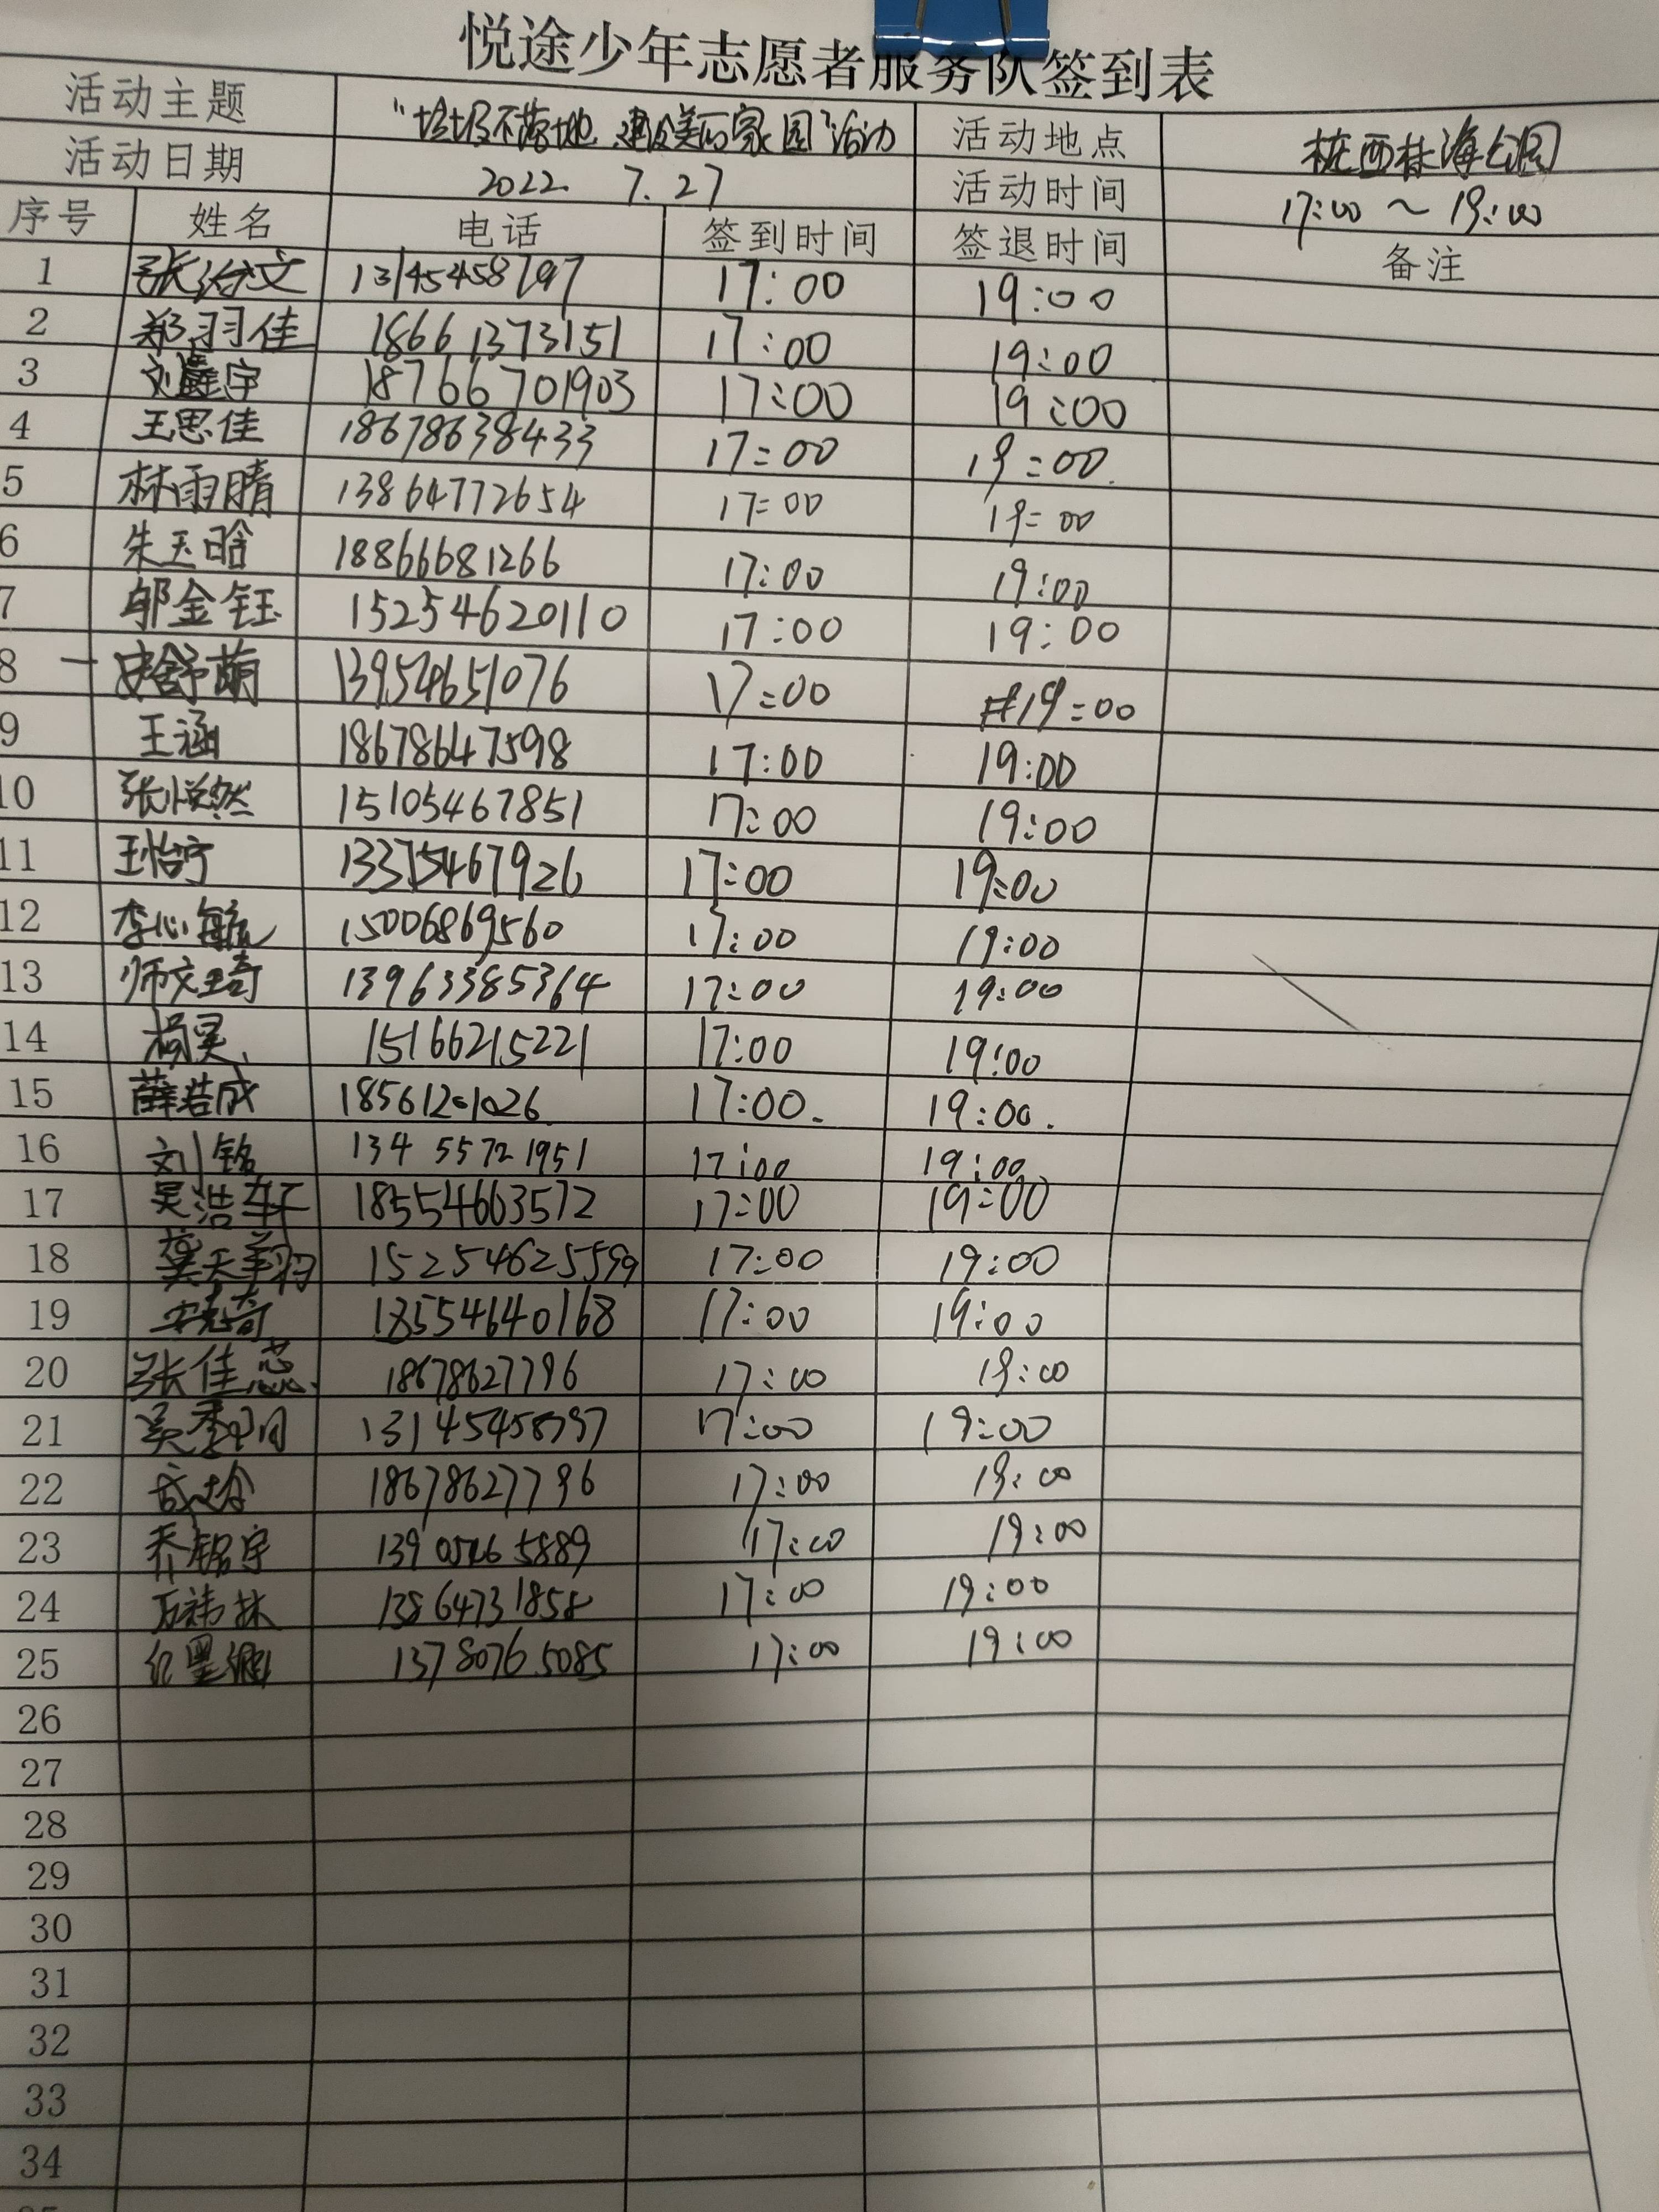 悦途少年志愿者服务队签到表
活动主题 "垃圾不落地、建设美丽家园"活动 活动地点 桩西林海公园
活动日期 2022. 7.27 活动时间 17:00 ~ 19:00
序号 姓名 电话 签到时间 签退时间 备注
1 张治文 13145458797 17:00 19:00
2 郑羽佳 18661373151 17:00 19:00
3 刘鑫宇 18766701903 17:00 19:00
4 王思佳 18678638433 17:00 19:00.
5 林雨晴 13864772654 17:00 19:00
6 朱玉晗 18866681266 17:00 19:00
7 邬金钰 15254620110 17:00 19:00
8 安舒萌 13954651076 17:00 19:00
9 王涵 18678647598 17:00 19:00
10 张悦然 15105467851 17:00 19:00
11 王怡宁 13375467926 17:00 19:00
12 李心毓 15006869560 17:00 19:00
13 师文琦 13963385364 17:00 19:00
14 杨昊 15166215221 17:00 19:00
15 薛浩成 18561201026 17:00. 19:00.
16 刘铭 134 5572 1951 17:00 19:00
17 吴浩轩 18554663572 17:00 19:00
18 龚天翔 15254625599 17:00 19:00
19 18554640168 17:00 19:00
20 张佳蕊 18678627796 17:00 19:00
21 吴 13145458797 17:00 19:00
22 18678627796 17:00 19:00
23 乔铭宇 139 0546 5889 17:00 19:00
24 13864731858 17:00 19:00
25 13780765085 17:00 19:00
26
27
28
29
30
31
32
33
34